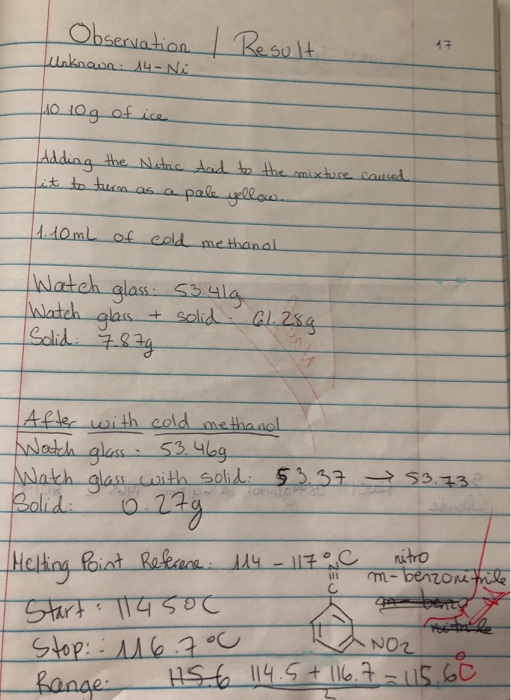 Observation / Result
17
Unknown: 14-Ni
10.10g of ice
Adding the Nitric Acid to the mixture caused
it to turn as a pale yellow.
1.10mL of cold methanol
Watch glass: 53.41g
Watch glass + solid: 61.28g
Solid: 7.87g
After with cold methanol
Watch glass: 53.46g
Watch glass with solid: 53.37 → 53.73
Solid: 0.27g
Melting Point Referene: 114 - 117°C
nitro
m-benzonitrile
m-benzo
nitrile
N
≡
C
NO2
Start: 114.5°C
Stop: 116.7°C
Range: 115.6 114.5 + 116.7 = 115.6°C
2